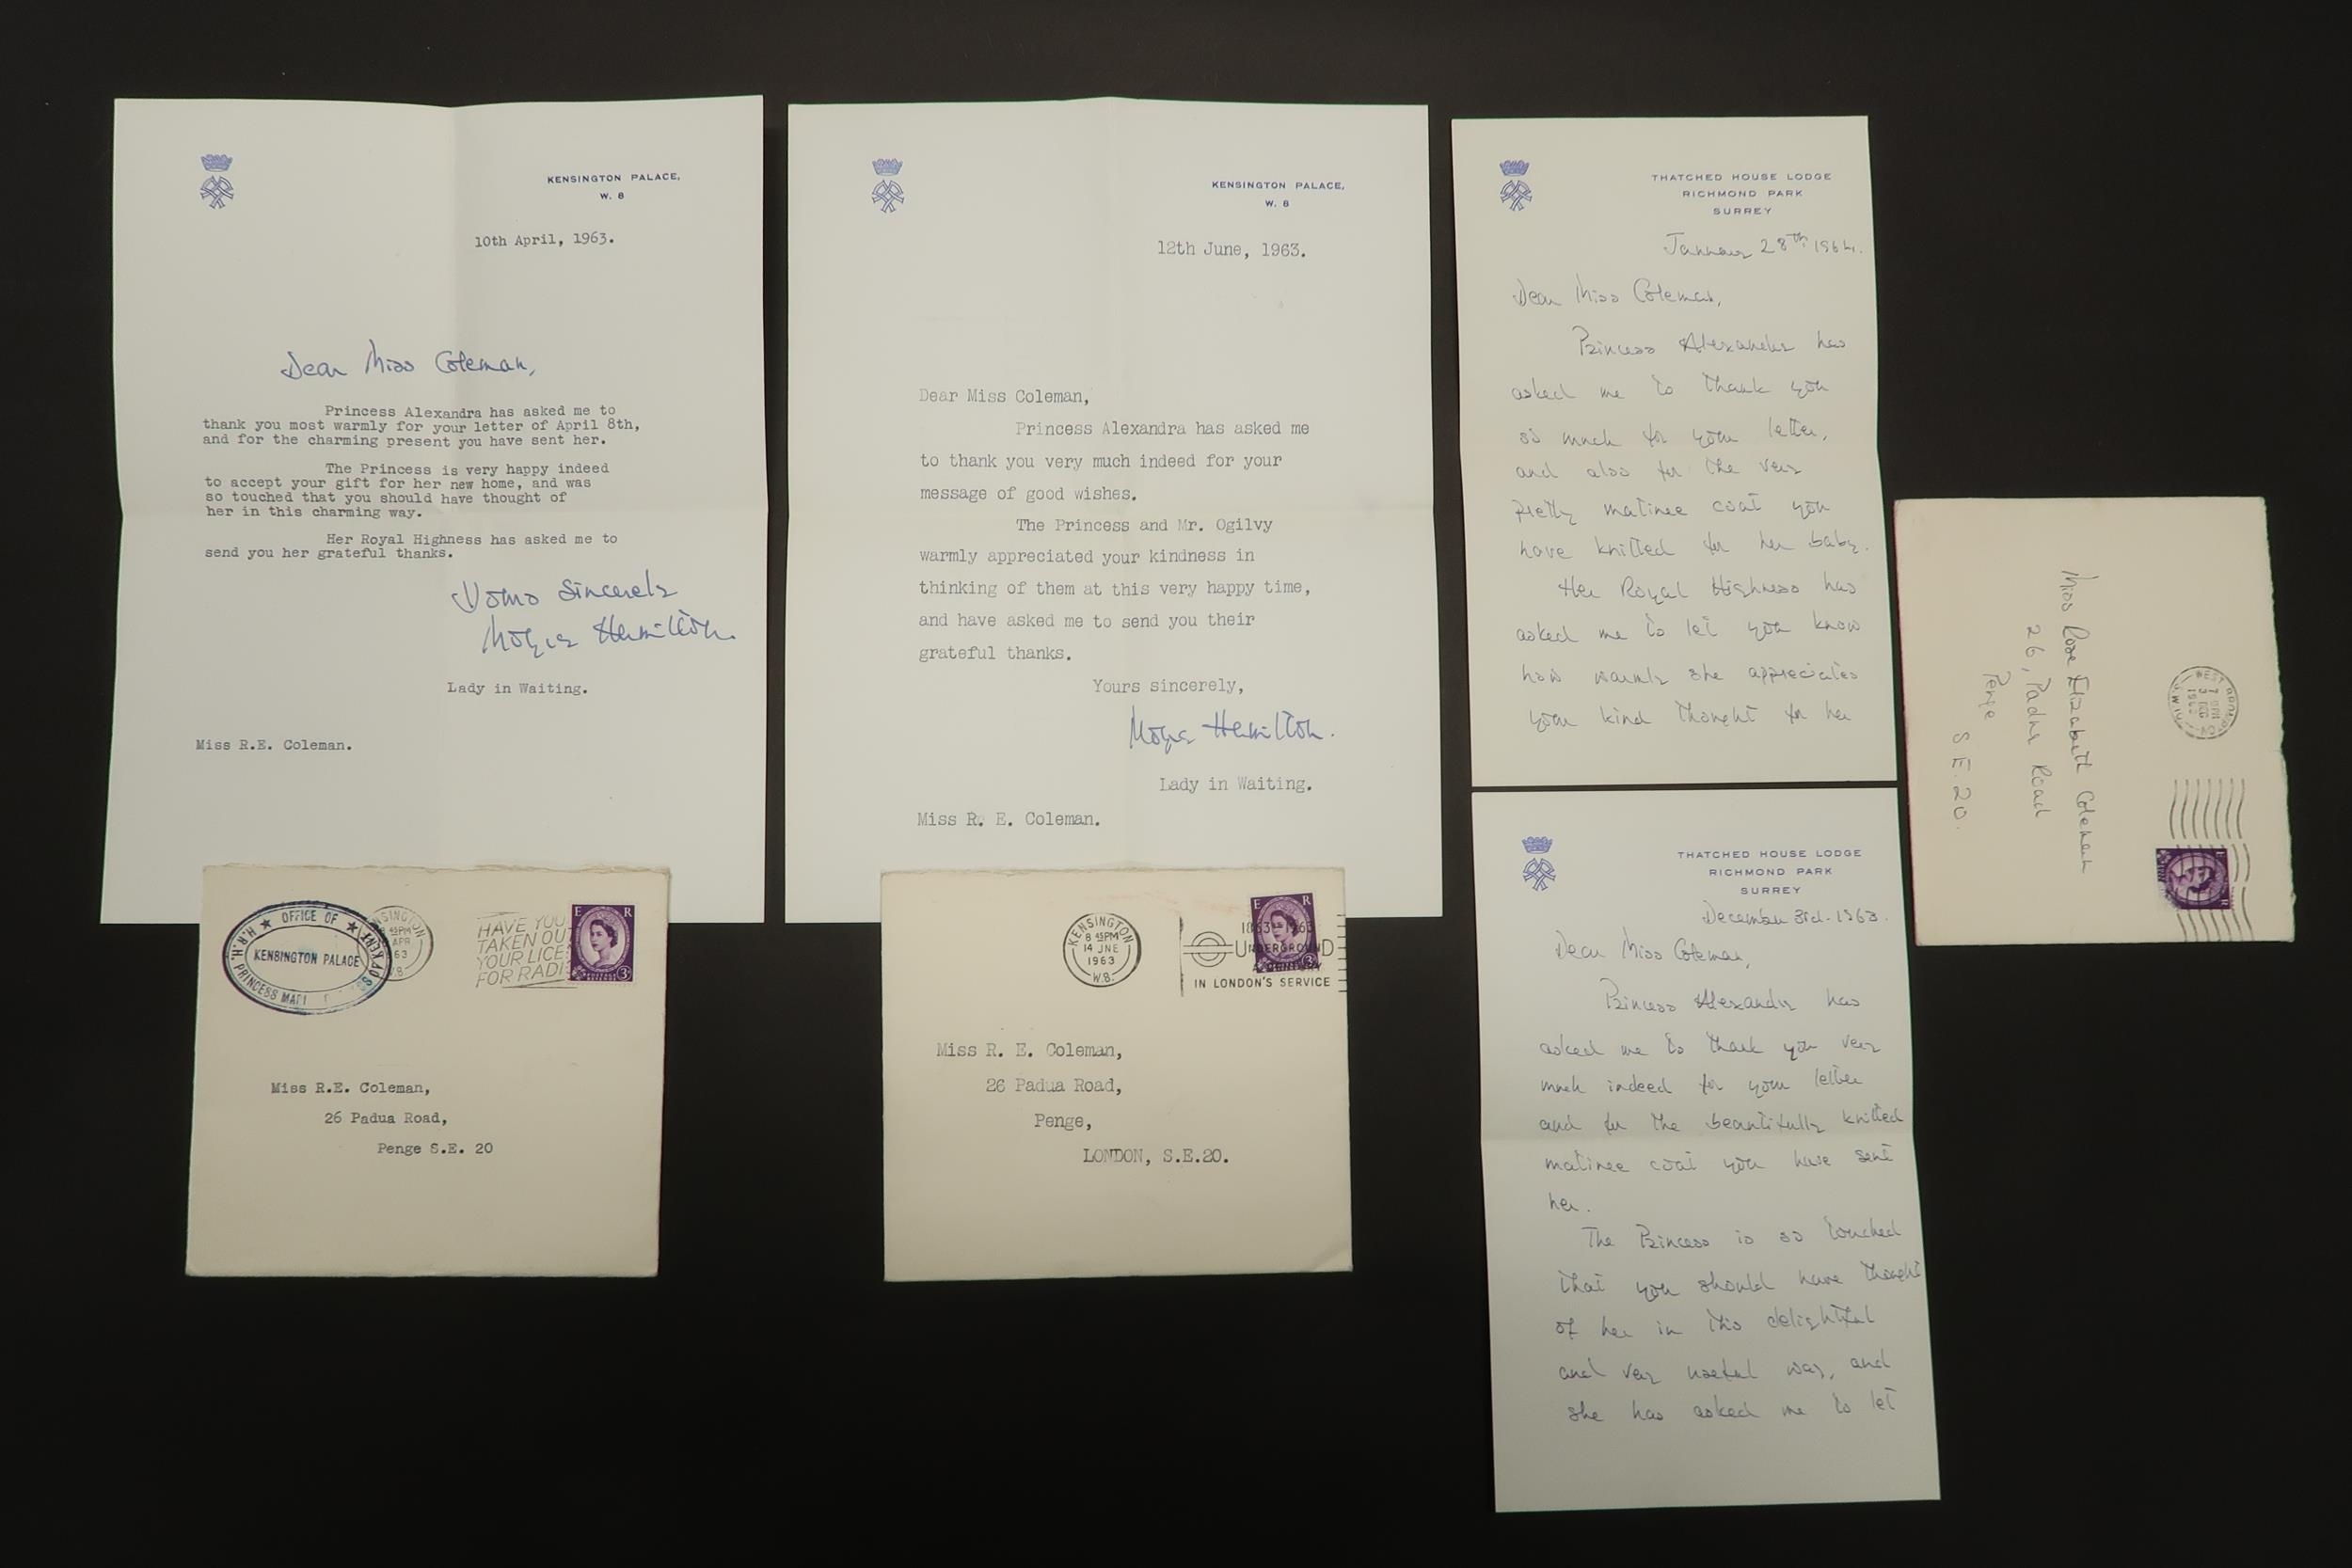 KENSINGTON PALACE,
W. 8
10th April, 1963.
Dear Miss Coleman,
Princess Alexandra has asked me to
thank you most warmly for your letter of April 8th,
and for the charming present you have sent her.
The Princess is very happy indeed
to accept your gift for her new home, and was
so touched that you should have thought of
her in this charming way.
Her Royal Highness has asked me to
send you her grateful thanks.
Yours sincerely
Moyra Hamilton.
Lady in Waiting.
Miss R.E. Coleman.
OFFICE OF
H.R.H. PRINCESS
KENSINGTON PALACE
APR
63
W.8
HAVE YOU
TAKEN OUT
YOUR LICE
FOR RADI
E R
3
Miss R.E. Coleman,
26 Padua Road,
Penge S.E. 20
KENSINGTON PALACE,
W. 8
12th June, 1963.
Dear Miss Coleman,
Princess Alexandra has asked me
to thank you very much indeed for your
message of good wishes.
The Princess and Mr. Ogilvy
warmly appreciated your kindness in
thinking of them at this very happy time,
and have asked me to send you their
grateful thanks.
Yours sincerely,
Moyra Hamilton.
Lady in Waiting.
Miss R. E. Coleman.
KENSINGTON
8 45PM
14 JNE
1963
W.8.
E R
1863-1963
UNDERGROUND
A CENTURY
IN LONDON'S SERVICE
Miss R. E. Coleman,
26 Padua Road,
Penge,
LONDON, S.E.20.
THATCHED HOUSE LODGE
RICHMOND PARK
SURREY
January 28th 1964.
Dear Miss Coleman,
Princess Alexandra has
asked me to thank you
so much for your letter,
and also for the very
pretty matinee coat you
have knitted for her baby.
Her Royal Highness has
asked me to let you know
how warmly she appreciates
your kind thought for her
THATCHED HOUSE LODGE
RICHMOND PARK
SURREY
December 3rd. 1963.
Dear Miss Coleman,
Princess Alexandra has
asked me to thank you very
much indeed for your letter
and for the beautifully knitted
matinee coat you have sent
her.
The Princess is so touched
that you should have thought
of her in this delightful
and very useful way, and
she has asked me to let
Miss Rose Elizabeth Coleman
26, Padua Road
Penge
S.E. 20.